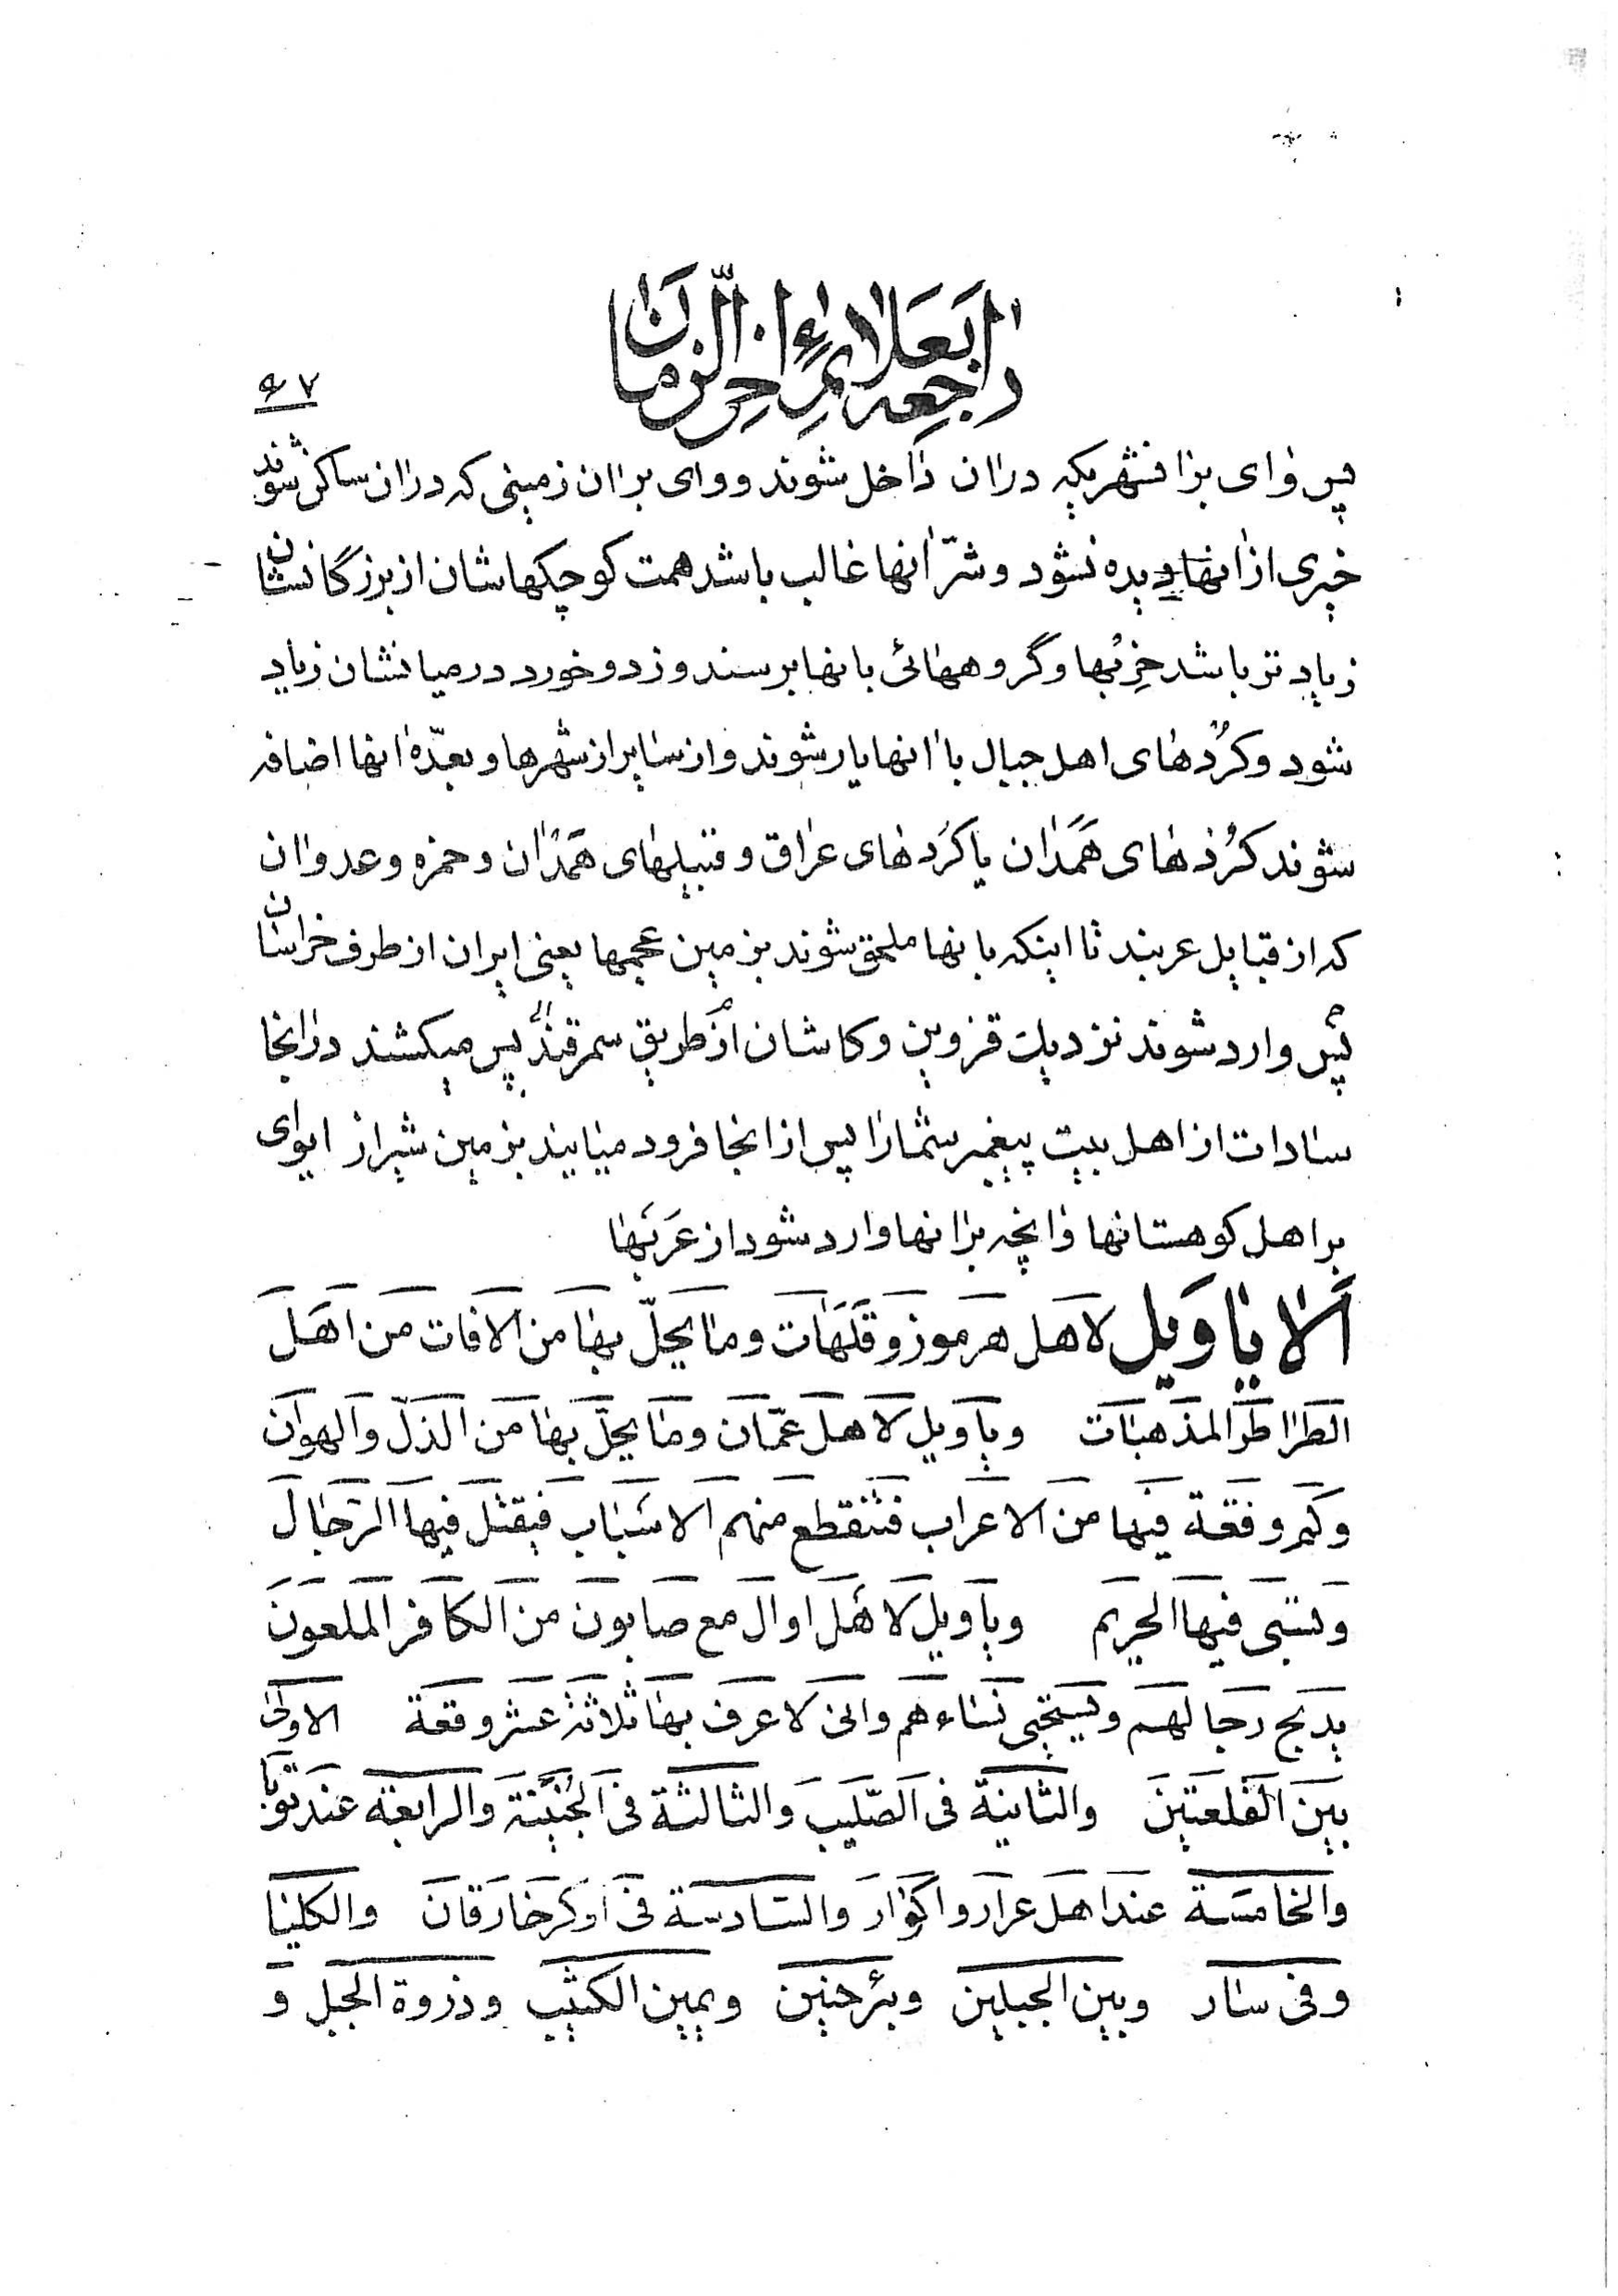 راجعه بعلائم اخر الزمان
۶۷
پس وای بر انشهریکه در ان داخل شوند و وای بر ان زمینی که در ان ساکن شوند
خیری از انها دیده نشود و شرّ انها غالب باشد همت کوچکهاشان از بزرگانشان
زیادتر باشد حزبها و گروههائی بانها برسند و زد و خورد در میانشان زیاد
شود و کردهای اهل جبال با انها یار شوند و از سایر از شهرها و بعدّه انها اضافه
شوند کردهای همدان یا کردهای عراق و قبیلهای همدان و حمزه و عدوان
که از قبایل عربند تا اینکه بانها ملحق شوند بزمین عجمها یعنی ایران از طرف خراسان
پس وارد شوند نزدیک قزوین و کاشان از طریق سمرقند پس میکشند در انجا
سادات از اهل بیت پیغمبر شما را پس از انجا فرود میایند بزمین شیراز ایوای
بر اهل کوهستانها و انچه بر انها وارد شود از عربها
الا یا ویل لاهل هرموز و قلهات وما یحلّ بها من الافات من اهل
الطراطر المذهبات ویا ویل لاهل عمّان وما یحلّ بها من الذلّ والهوان
وکم وقعة فیها من الاعراب فتنقطع منهم الاسباب فیقتل فیها الرّجال
وتسبی فیها الحریم ویا ویل لاهل اوال مع صابون من الکافر الملعون
یذبح رجالهم ویستحیی نساءهم وانی لاعرف بها ثلاثة عشر وقعة الاولی
بین القلعتین والثانیة فی الصّلیب والثالثة فی الجُنَیبة والرابعة عند نوبا
والخامسة عند اهل عراد واکوار والسّادسة فی اوکر خارقان والکلیا
وفی سار وبین الجبلین وبئر حنین ویمین الکثیب وذروة الجبل و